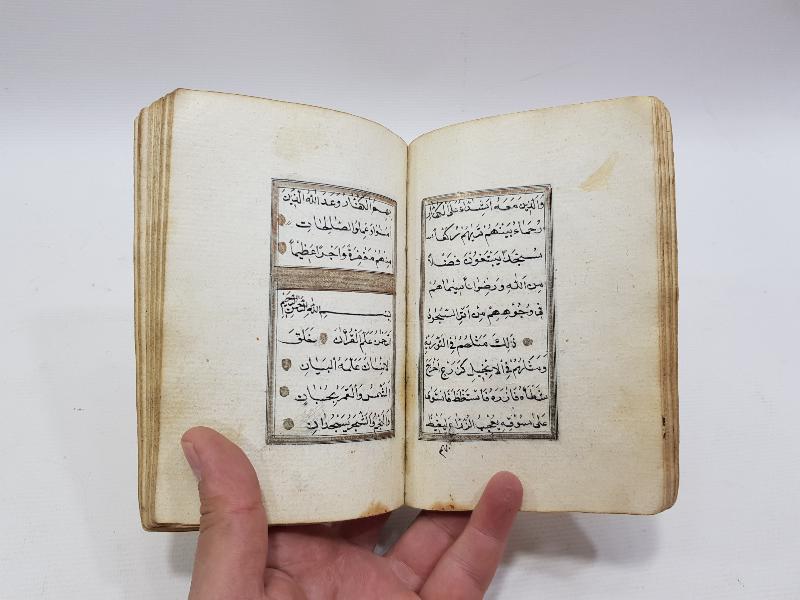 والذين معه اشداء على الكفار
رحماء بينهم تريهم ركعا
سجدا يبتغون فضلا
من الله ورضوانا سيماهم
في وجوههم من اثر السجود
ذلك مثلهم في التورية
ومثلهم في الانجيل كزرع اخرج
شطأه فازره فاستغلظ فاستوى
على سوقه يعجب الزراع ليغيظ
بهم
بهم الكفار وعد الله الذين
امنوا وعملوا الصالحات
منهم مغفرة واجرا عظيما
بسم الله الرحمن الرحيم
الرحمن علم القرآن خلق
الانسان علمه البيان
الشمس والقمر بحسبان
والنجم والشجر يسجدان